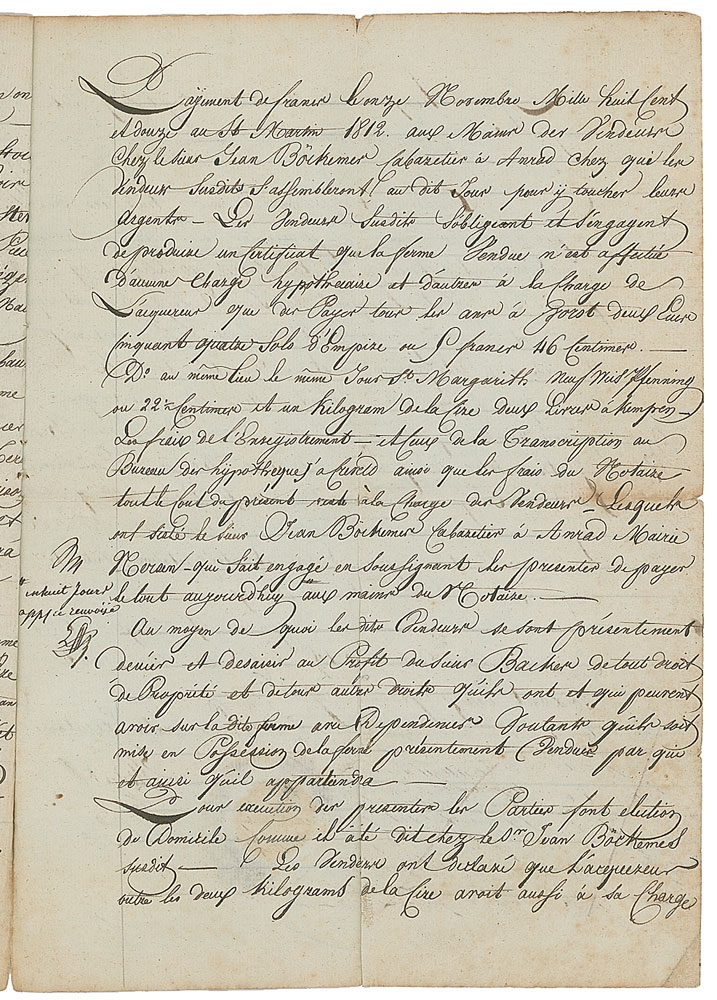 Payment de francs le onze Novembre Mille huit Cent
et douze au St Martin 1812. aux Mains des Vendeurs
Chez le sieur Jean Böckemes Cabaretier à Anrad chez qui les
Vendeurs Susdits S'assembleront au dit Jour pour y toucher leurs
Argents – Les Vendeurs Susdits S'obligeant et S'engagent
de produire un Certificat que la ferme Vendue n'est affectée
D'aucune Charge hypothecaire et d'autres à la Charge de
L'acquereur que de Payer tous les ans à deux
Cinquant quatre Sols d'Empire ou 5 francs 46 Centimes. —
Do au même lieu le même Jour St Margarith Neuf Pfenning
ou 22 Centimes et un Kilogram de la Cire deux Livres à Kempen –
Les frais de l'Enregistrement – et Ceux de la Transcription au
Bureau des hypotheques à Créveld ainsi que les frais du Notaire
tout le Cout du présent à la Charge des Vendeurs – Lesquels
ont le sieur Jean Böckemes Cabaretier à Anrad Mairie
Nersen – qui s'ait engagé en soussignant les presentes de payer
le tout aujourd'huy aux mains du Notaire. —
en huit Jours
app: ce renvoÿé
Au moyen de quoi les dits Vendeurs se sont présentement
demis et desaisis au Profit du Sieur Backes de tout droit
de Propriété et de tous autres droits qu'ils ont et qui peuvent
avoir sur la dite ferme avec Dependences Voulants qu'ils soit
mise en Possession de la ferme présentement Vendue par qui
et aussi qu'il appartiendra —
Pour execution des presentes les Parties font election
de Domicile Comme il a été dit chez le Sr Jean Böckemes
susdit – Les Vendeurs ont declaré que L'acquereur
outre les deux Kilograms de la Cire avoit aussi à sa Charge